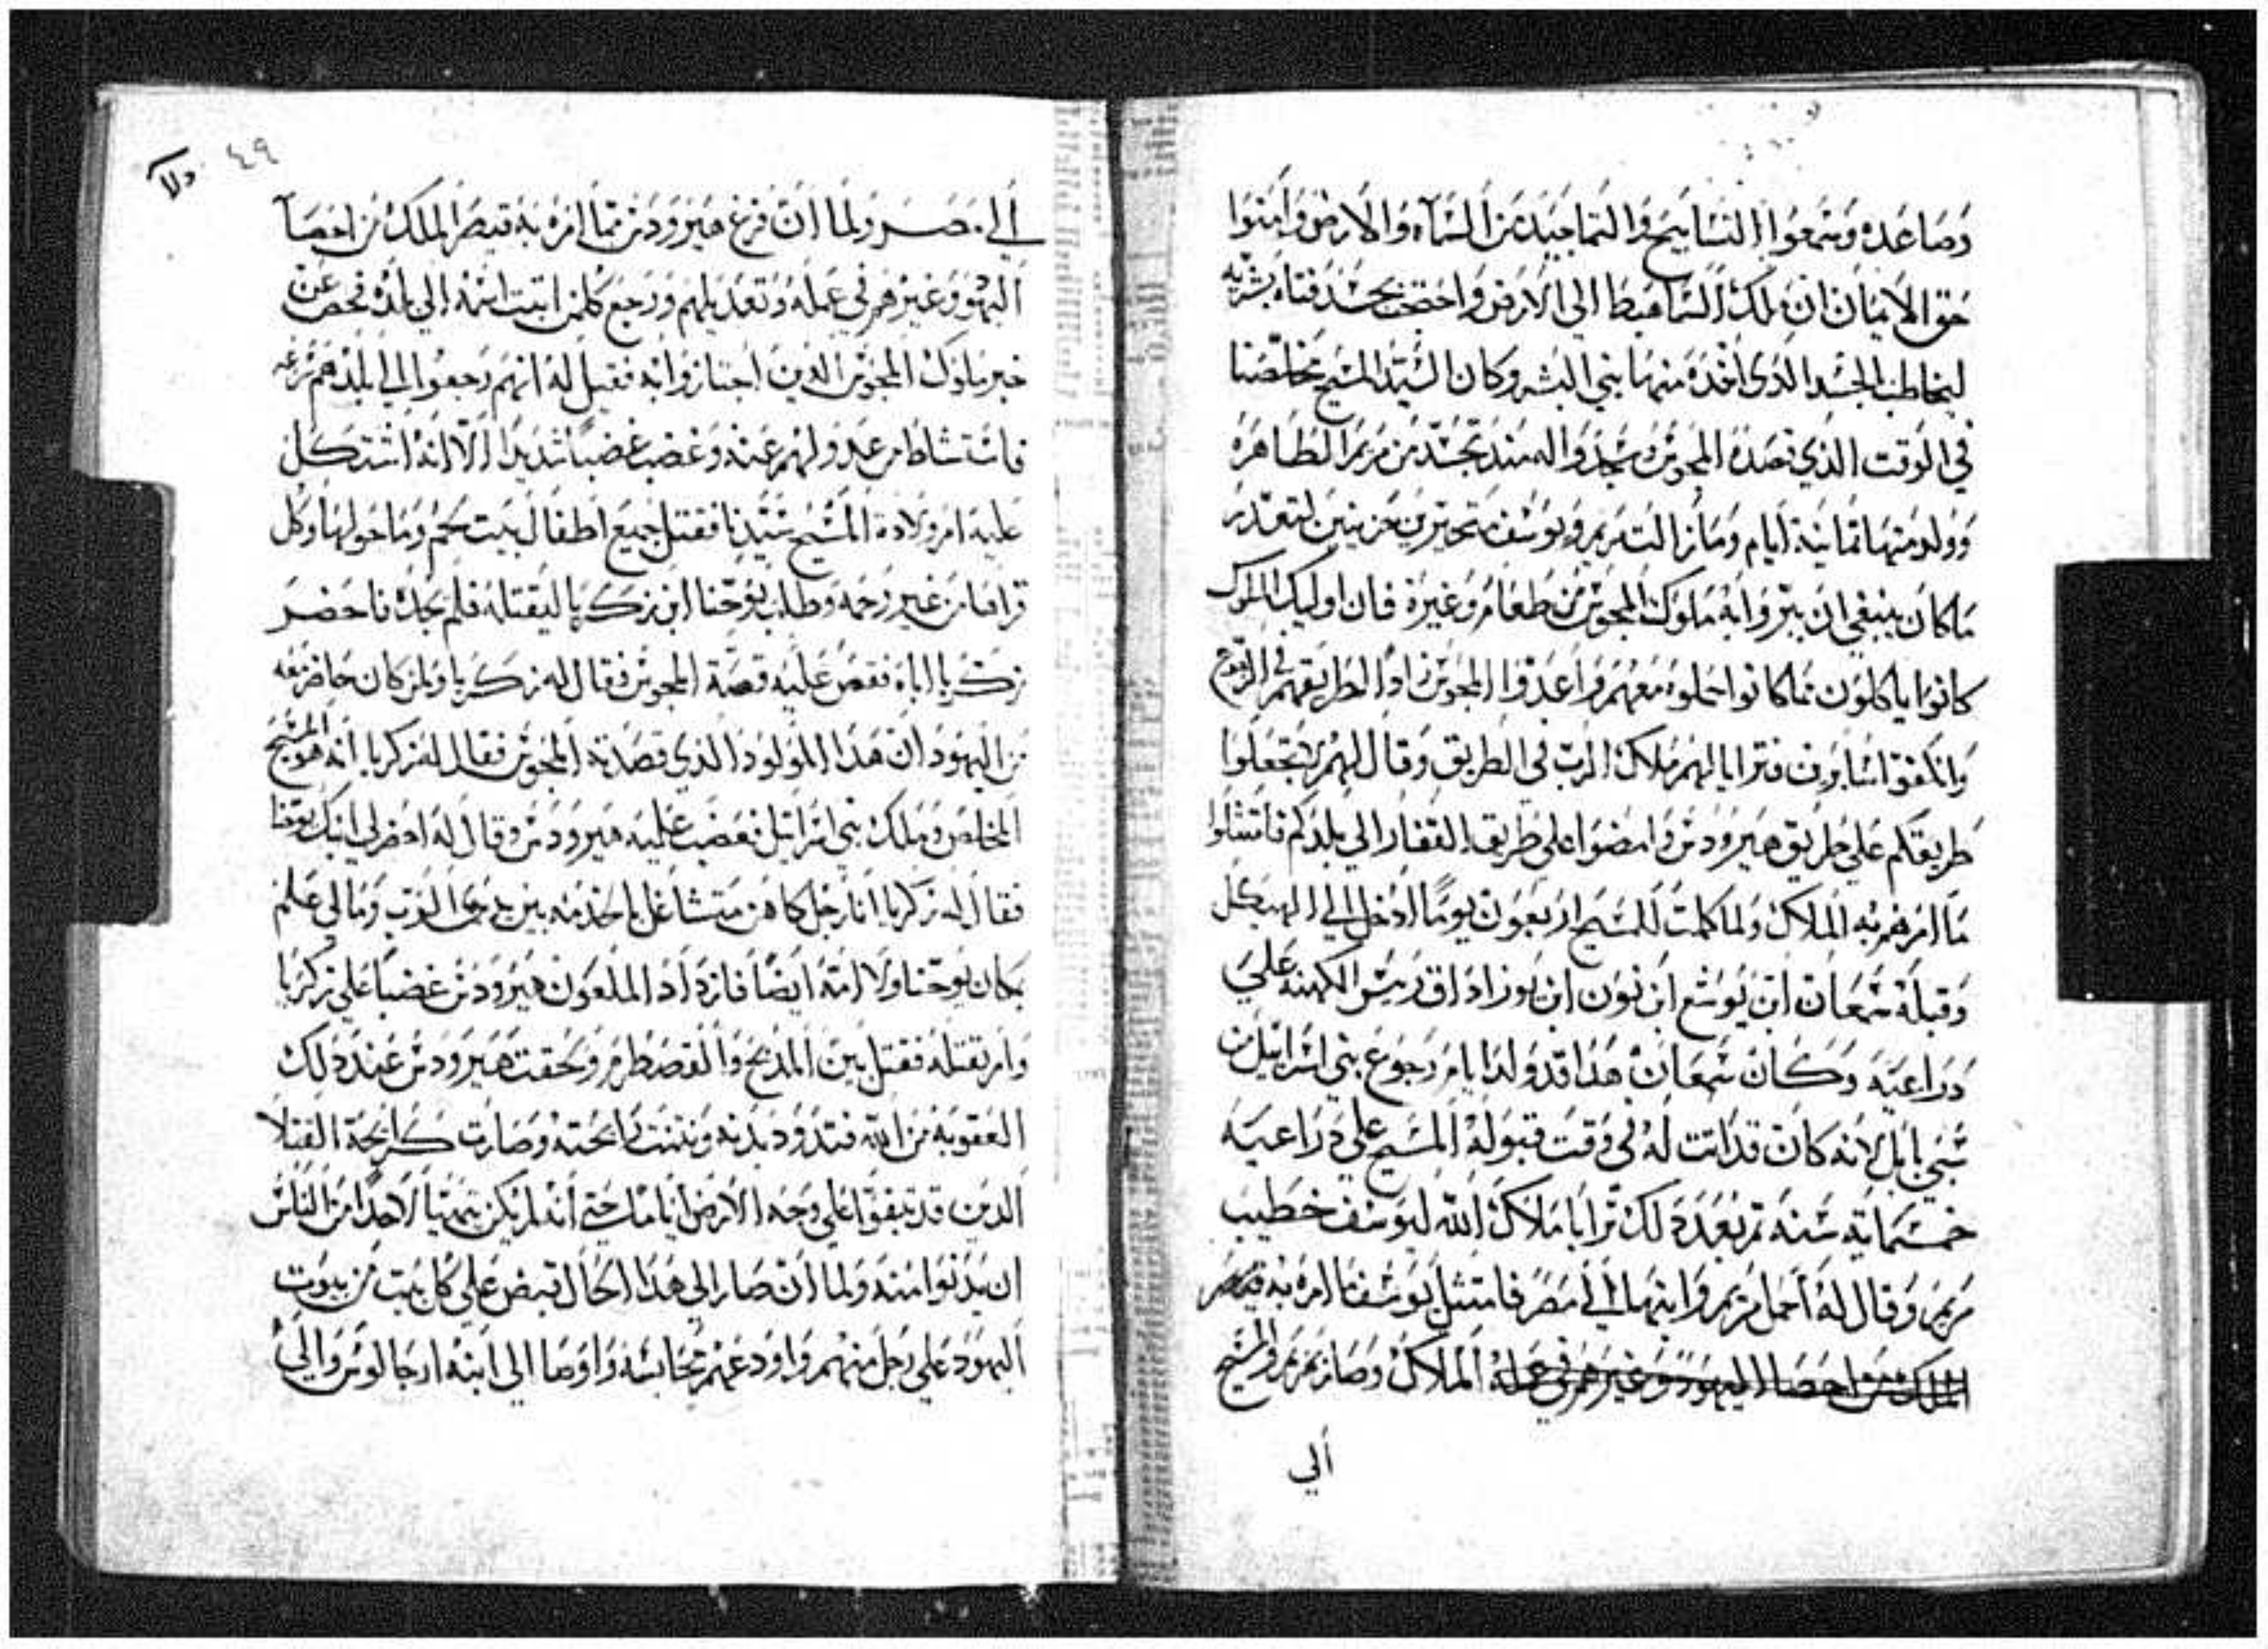 وصاعده وسمعوا التسابيح والتماجيد من السماء والارض وامنوا
حق الايمان ان ملك السما هبط الي الارض واحتجب بجسد فتاه بشريه
ليخاطب الجسد الذي اخذه منها بني البشر وكان السيد المسيح مخلصنا
في الوقت الذي قصده المجوس وسجدوا له منذ تجسد من مريم الطاهره
وولد منها ثمانية ايام ومازالت مريم ويوسف متحيرين حزينين لتعذر
ماكان ينبغي ان يبروا به ملوك المجوس من طعام وغيره فان اوليك الملوك
كانوا ياكلون مما كانوا حملوه معهم واعدوا المجوس زادا لطريقهم في الرجوع
وانكفوا سايرون فترايا لهم ملاك الرب في الطريق وقال لهم لا تجعلوا
طريقكم علي طريق هيرودس وامضوا علي طريق القفار الي بلدكم فامتثلوا
ما امرهم به الملاك ولما كملت للمسيح اربعون يوما ادخل الي الهيكل
وقبله شمعان ابن يوشع ابن نون ابن يوزاداق رييس الكهنه علي
دراعيه وكان شمعان هذا قد ولد ايام رجوع بني اسرائيل من
سبي بابل لانه كان قد اتت له في وقت قبوله المسيح علي دراعيه
خمسماية سنه ثم بعد دلك ترايا ملاك الله ليوسف خطيب
مريم وقال له احمل مريم وابنها الي مصر فامتثل يوسف ما امره به قيصر
الملك من احصا اليهود وغيرهم في عمله الملاك وصار بمريم والمسيح
الي
٤٩
الي مصر ولما ان فرغ هيرودس مما امره به قيصر الملك من احصآ
اليهود وغيرهم في عمله وتعديلهم ورجع كلمن اتبت اسمه الي بلده فحص عن
خبر ملوك المجوس الدين اجتازوا به فقيل له انهم رجعوا الي بلدهم
فاستشاط من عدولهم عنه وغضب غضبا شديدا الا انه اشتد كل
عليه امر ولادة المسيح سيدنا فقتل جميع اطفال بيت لحم وما حولها وكل
قراها من غير رحمه وطلب يوحنا ابن زكريا ليقتله فلم يجده فاحضر
زكريا اباه فقص عليه قصة المجوس فقال له زكريا ولمن كان حاضر معه
من اليهود ان هدا المولود الذي قصدته المجوس فقال لهم زكريا انه هو المسيح
المخلص وملك بني اسرائيل فغضب عليه هيرودس وقال له احضر لي ابنك يوحنا
فقال له زكريا انا رجل كاهن متشاغل بالخدمه بين يدي الرب ومالي علم
بمكان يوحنا ولا امه ايضا فازداد الملعون هيرودس غضبا علي زكريا
وامر بقتله فقتل بين المدبح والقصطرم ولحقت هيرودس عند دلك
العقوبه من الله فتدود بدنه ونتنت رايحته وصارت كرايحة القتلا
الدين قد تبقوا علي وجه الارض اياما حتي انه لم يكن يتهيا لاحد من الناس
ان يدنوا منه ولما ان صار الي هدا الحال قبض علي كل بيت من بيوت
اليهود علي رجل منهم واودعهم محابسه واوصا الي ابنه ارجالوس والي